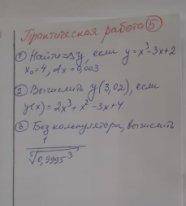 Практическая работа 5
① Найти ≈Δy, если y=x³-3x+2
x₀=4, Δx=0,003
② Вычислить y(3,02), если
y(x)=2x³+x²-3x+4.
③ Без калькулятора, вычислить
1
⁵√0,9995³